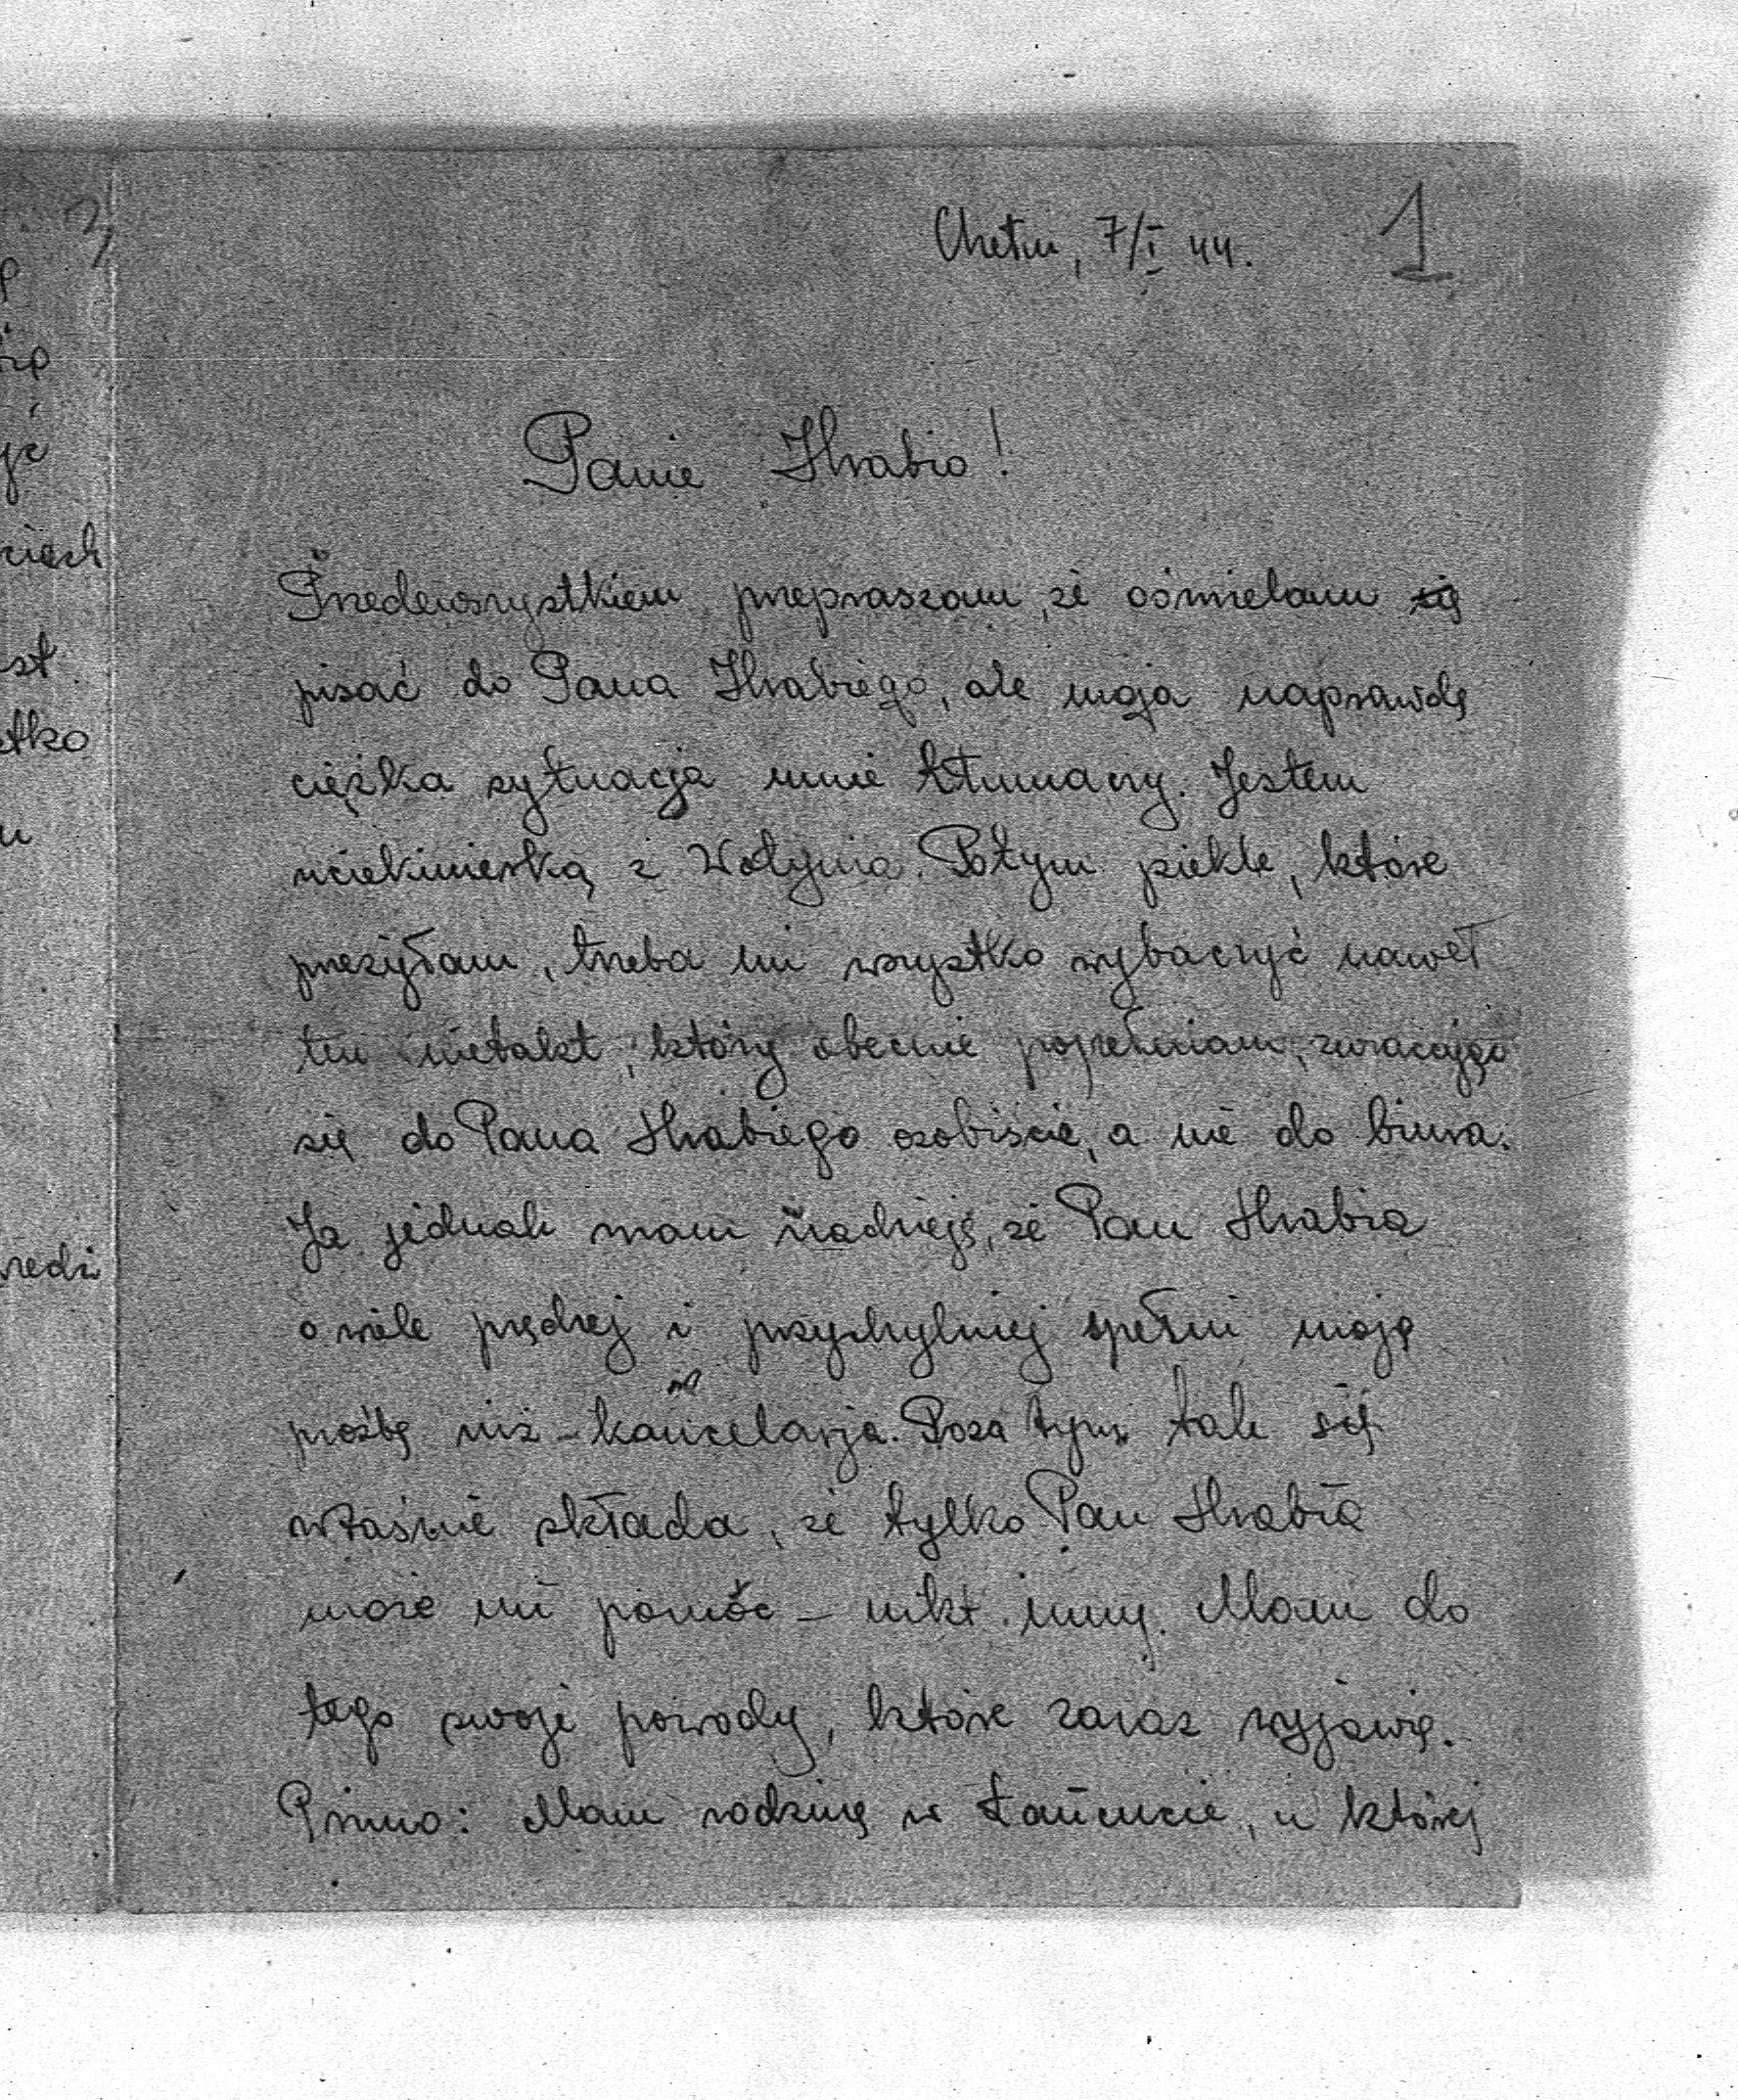 Chełm, 7/I 44. 1
Panie Hrabio!
Przedewszystkiem przepraszam, że ośmielam się
pisać do Pana Hrabiego, ale moja naprawdę
ciężka sytuacja mnie tłumaczy. Jestem
uciekinierką z Wołynia. Potym piekle, które
przeżyłam, trzeba mi wszystko wybaczyć nawet
ten nietakt, który obecnie popełniam, zwracając
się do Pana Hrabiego osobiście, a nie do biura.
Ja jednak mam nadzieję, że Pan Hrabia
o wiele prędzej i przychylniej spełni moją
prośbę niż - kancelarja. Poza tym tak się
właśnie składa, że tylko Pan Hrabia
może mi pomóc - nikt inny. Mam do
tego swoje powody, które zaraz wyjawię.
Primo: Mam rodzinę w Łańcucie, u której